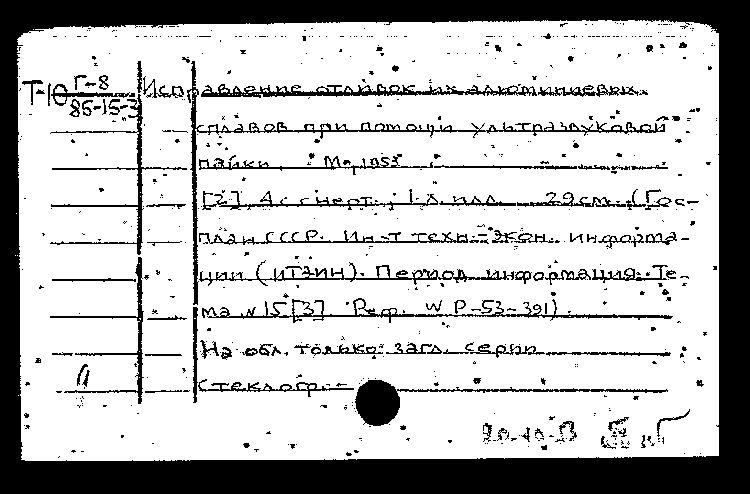 Т-10 Г-8 Исправление отливок их алюминиевых
86-15-3 сплавов при помощи ультразвуковой
пайки. М., 1953
[2], 4 с с черт.; 1 л. илл. 29 см. (Гос-
план СССР. Ин-т техн.-экон. информа-
ции (ИТЭИН). Период информация. Те-
ма № 15 [3] Реф. W P-53-391).
На обл. только загл. серии
Стеклогр. —
20-10-53